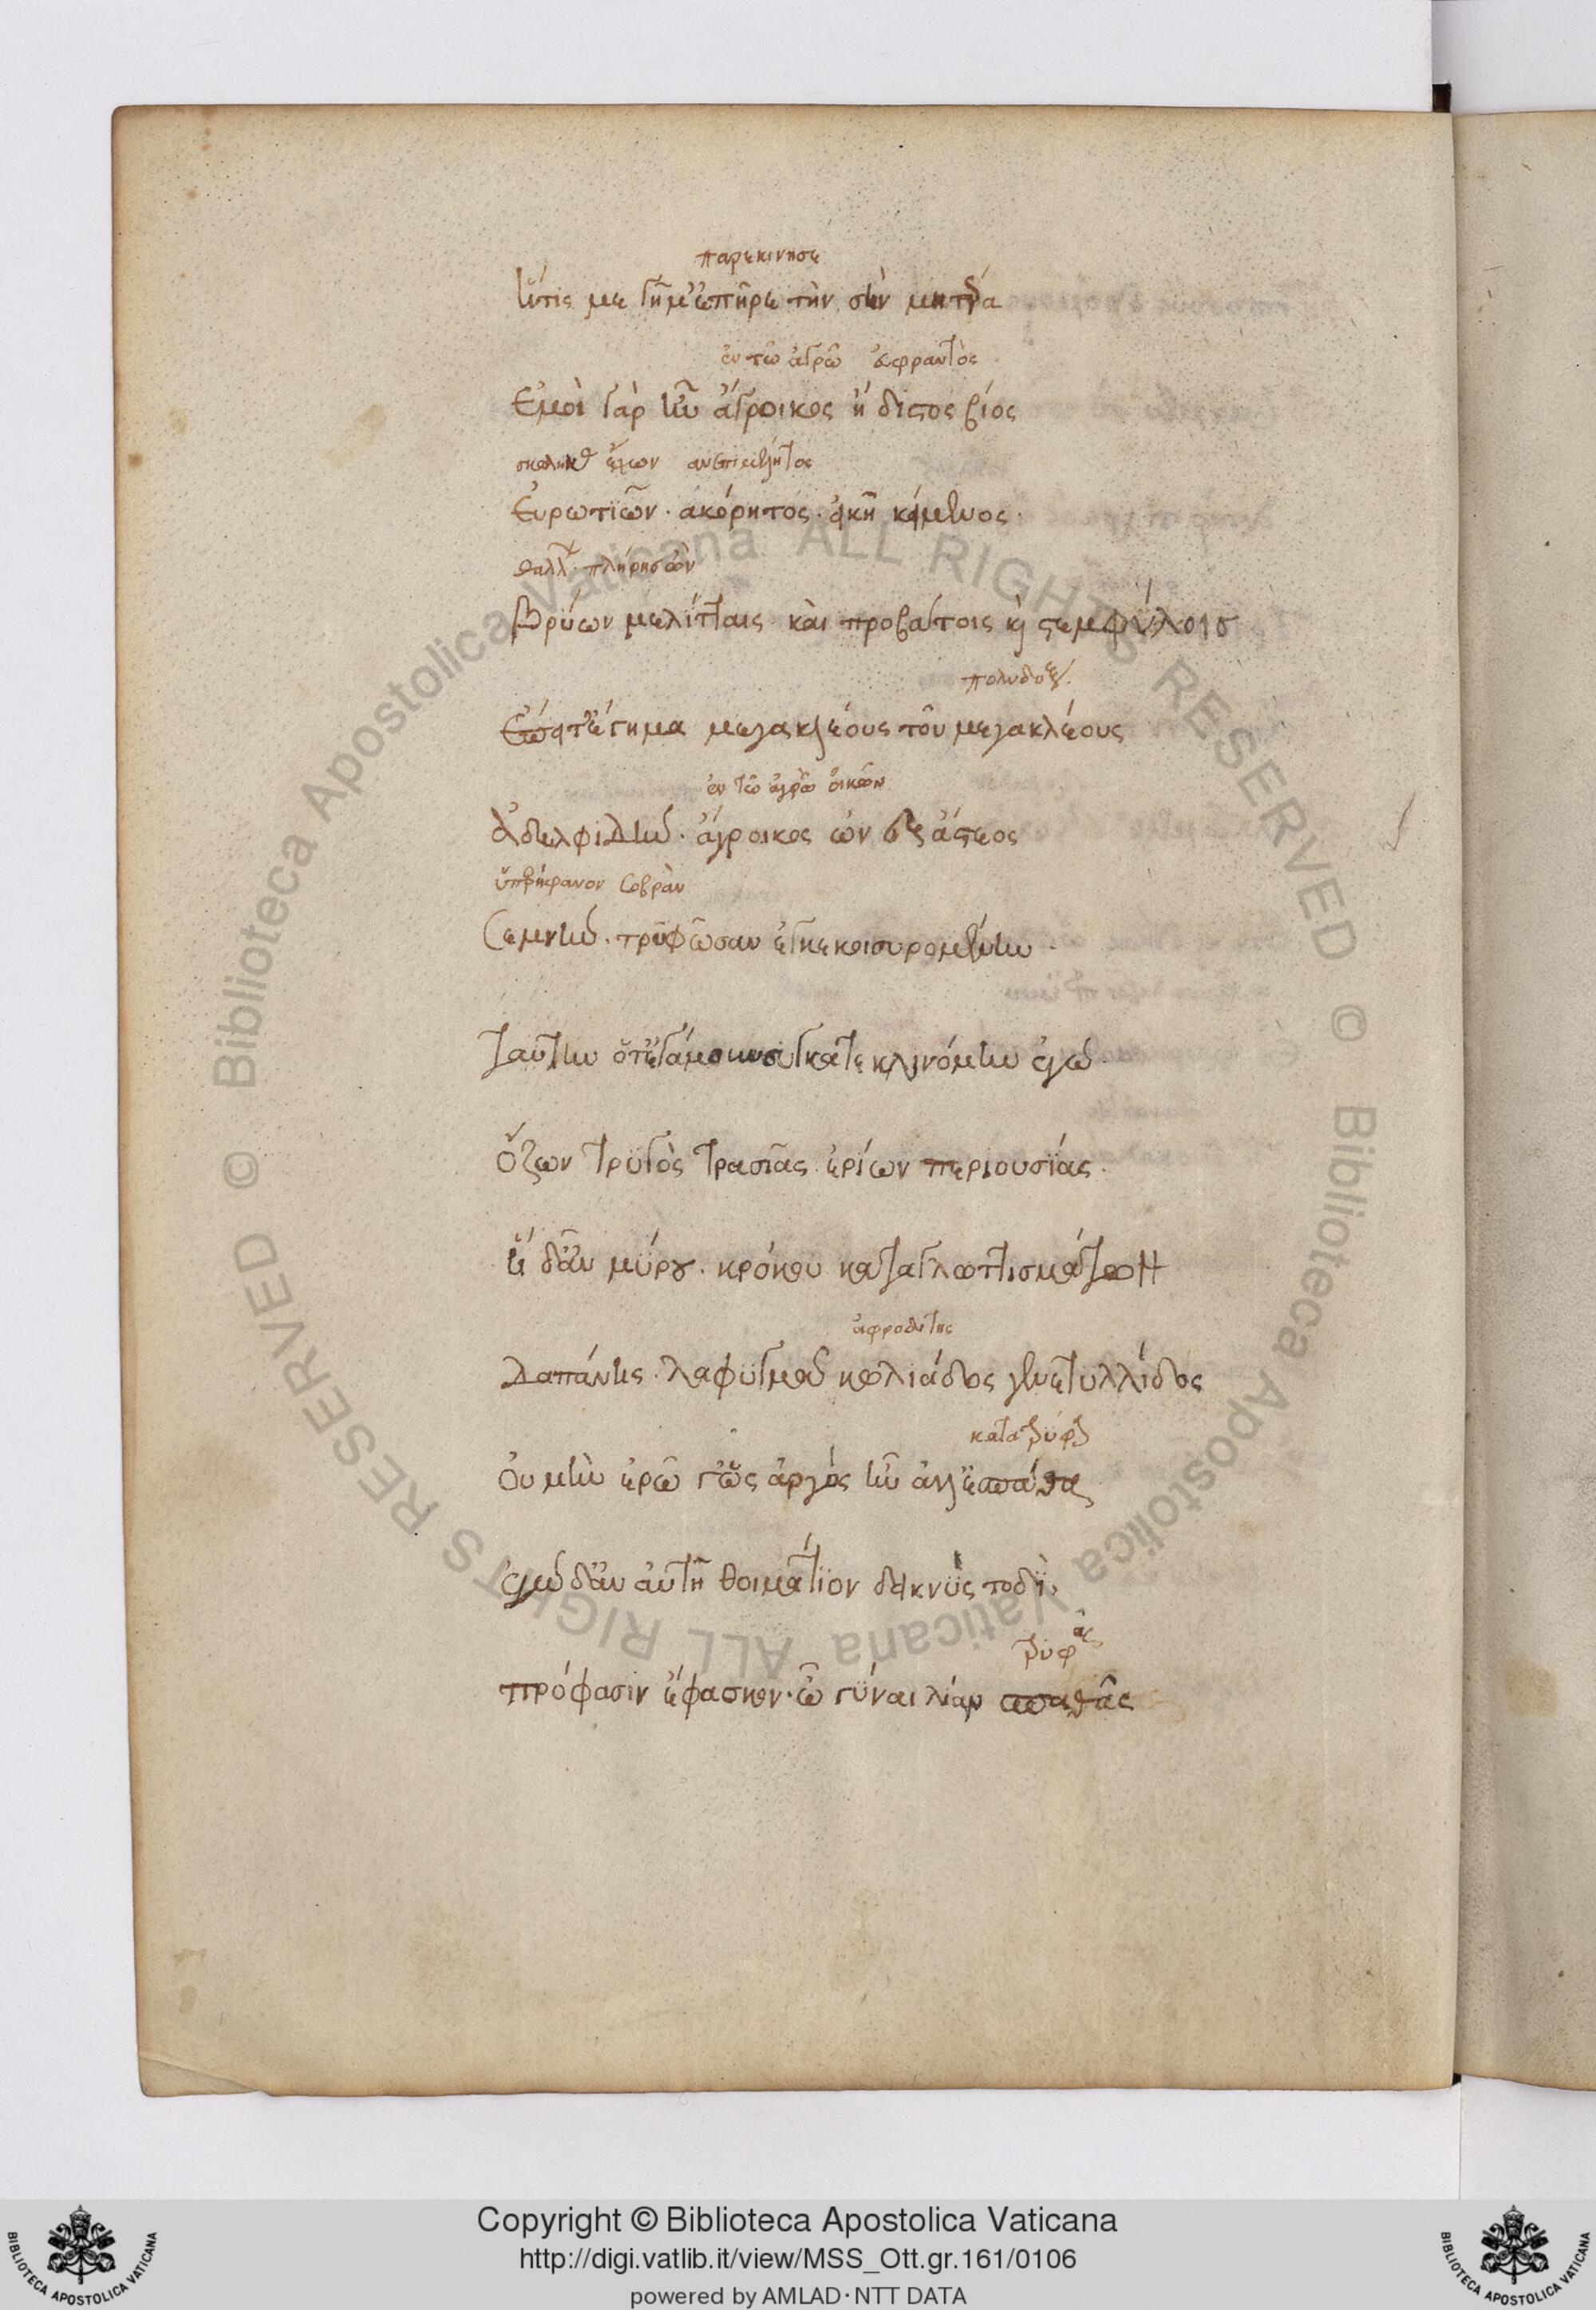 παρεκίνησε
ἥτις με γῆμ' ἐπῆρε τὴν σὴν μητέρα
ἐν τῶ ἀγρῶ εὐφραντὸς
Ἐμοὶ γὰρ ἦν ἄγροικος ἥδιστος βίος
ἔχων
Εὐρωτιῶν· ἀκόρητος· εἰκῆ κείμενος·
πλήρης ὢν
Βρύων μελίτταις καὶ προβάτοις κὶ στεμφύλοις
Ἔπειτ' ἔγημα μεγακλέους τοῦ μεγακλέους
ἐν τῶ ἀγρῶ οἰκῶν
ἀδελφιδὴν· ἄγροικος ὢν ἐξ ἄστεος
ὑπερήφανον σοβρὰν
Σεμνὴν· τρυφῶσαν ἐγκεκοισυρομένην·
Ταύτην ὅτ' ἐγάμουν συγκατεκλινόμην ἐγὼ
ὄζων τρυγὸς τρασιᾶς ἐρίων περιουσίας·
ἡ δ' ἂν μύρου· κρόκου καταγλωττισμάτων
ἀφροδίτης
Δαπάνης· λαφυγμοῦ κωλιάδος γενετυλλίδος
Οὐ μὴν ἐρῶ γ' ὡς ἀργὸς ἦν ἀλλ' ἐσπάθα
ἐγὼ δ' ἂν αὐτῆ θοιμάτιον δεικνὺς τοδὶ·
τρυφᾶς
πρόφασιν ἔφασκον· ὦ γύναι λίαν σπαθᾶς
© Biblioteca Apostolica Vaticana ALL RIGHTS RESERVED © Biblioteca Apostolica Vaticana ALL RIGHTS RESERVED
Copyright © Biblioteca Apostolica Vaticana
http://digi.vatlib.it/view/MSS_Ott.gr.161/0106
powered by AMLAD·NTT DATA
BIBLIOTECA APOSTOLICA VATICANA
BIBLIOTECA APOSTOLICA VATICANA